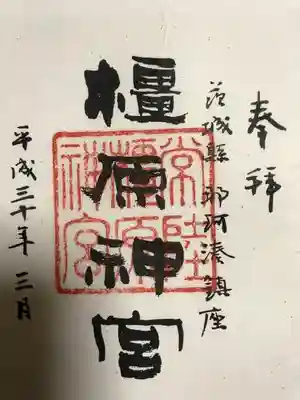 奉拝
茨城縣 那珂湊鎮座
橿原神宮
常陸
橿原
神宮
平成三十年 三月